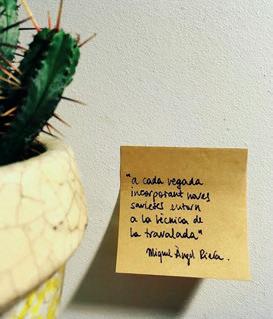 "a cada vegada
incorporant noves
savieses entorn
a la tècnica de
la travalada"
Miquel Àngel Riera.